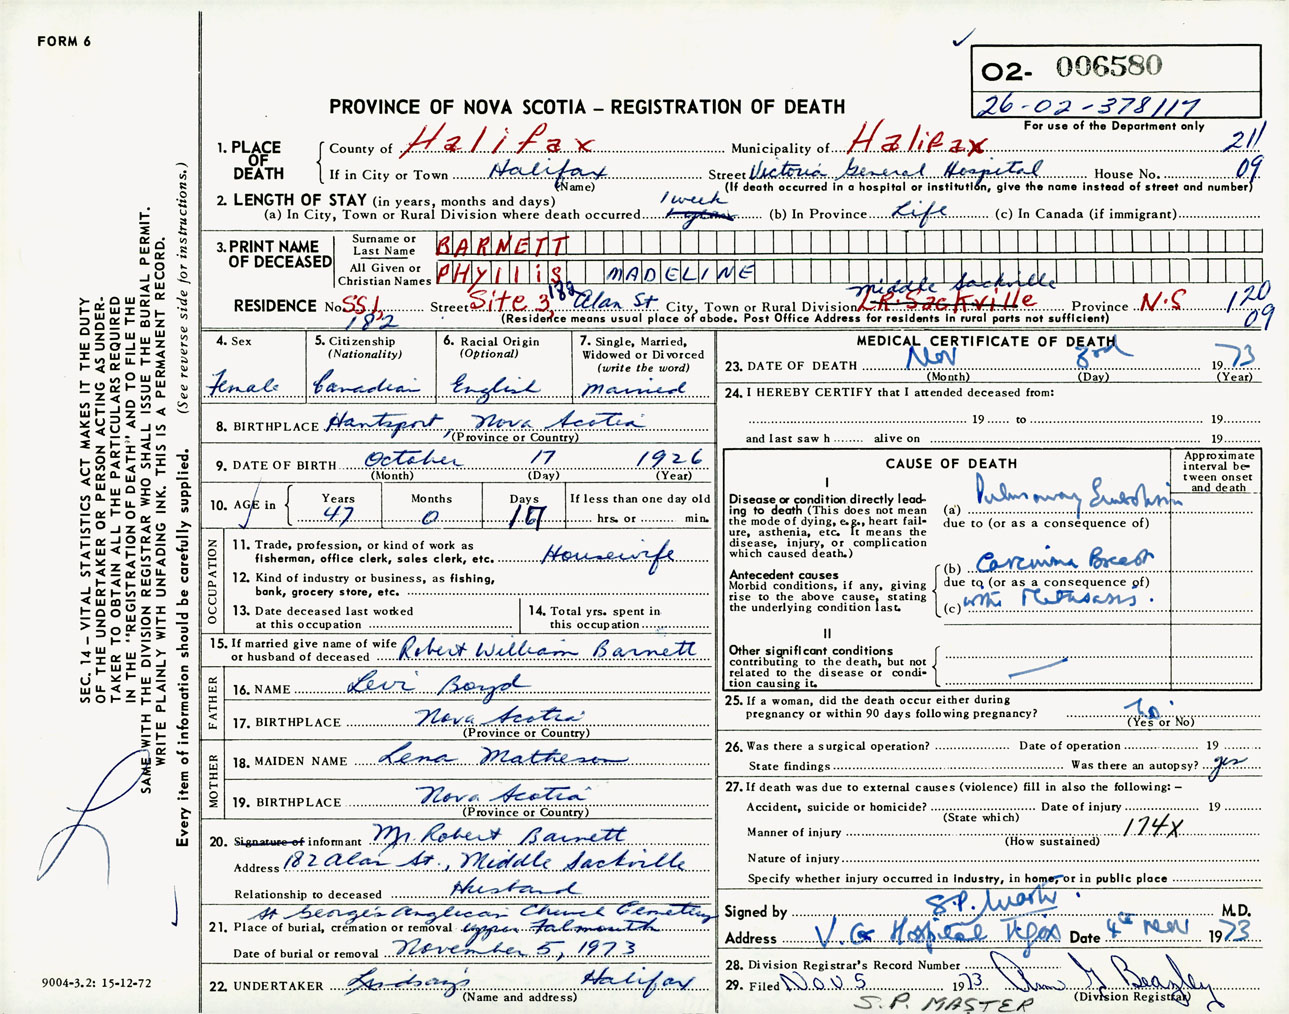 FORM 6
02- 006580
26-02-378117
For use of the Department only
PROVINCE OF NOVA SCOTIA – REGISTRATION OF DEATH
1. PLACE OF DEATH
County of Halifax Municipality of Halifax 211
If in City or Town Halifax Street Victoria General Hospital House No. 09
(Name) (If death occurred in a hospital or institution, give the name instead of street and number)
2. LENGTH OF STAY (in years, months and days) 1 week
(a) In City, Town or Rural Division where death occurred (b) In Province Life (c) In Canada (if immigrant)
3. PRINT NAME OF DECEASED
Surname or Last Name BARNETT
All Given or Christian Names PHYLLIS MADELINE
RESIDENCE No. SS1, 182 Street Site 3, 182 Alan St City, Town or Rural Division Middle Sackville L.R. Sackville Province N.S 120 09
(Residence means usual place of abode. Post Office Address for residents in rural parts not sufficient)
4. Sex Female
5. Citizenship (Nationality) Canadian
6. Racial Origin (Optional) English
7. Single, Married, Widowed or Divorced (write the word) Married
8. BIRTHPLACE Hantsport, Nova Scotia
(Province or Country)
9. DATE OF BIRTH October 17 1926
(Month) (Day) (Year)
10. AGE in Years 47 Months 0 Days 17 If less than one day old hrs. or min.
OCCUPATION
11. Trade, profession, or kind of work as fisherman, office clerk, sales clerk, etc. Housewife
12. Kind of industry or business, as fishing, bank, grocery store, etc.
13. Date deceased last worked at this occupation
14. Total yrs. spent in this occupation
15. If married give name of wife or husband of deceased Robert William Barnett
FATHER
16. NAME Levi Boyd
17. BIRTHPLACE Nova Scotia
(Province or Country)
MOTHER
18. MAIDEN NAME Lena Matheson
19. BIRTHPLACE Nova Scotia
(Province or Country)
20. Signature of informant Mr. Robert Barnett
Address 182 Alan St., Middle Sackville
Relationship to deceased Husband
St George's Anglican Church Cemetery
21. Place of burial, cremation or removal Upper Falmouth
Date of burial or removal November 5, 1973
22. UNDERTAKER Lindsay's Halifax
(Name and address)
MEDICAL CERTIFICATE OF DEATH
23. DATE OF DEATH Nov 3rd 1973
(Month) (Day) (Year)
24. I HEREBY CERTIFY that I attended deceased from:
19 to 19
and last saw h alive on 19
CAUSE OF DEATH
Approximate interval between onset and death
I
Disease or condition directly leading to death (This does not mean the mode of dying, e.g., heart failure, asthenia, etc. It means the disease, injury, or complication which caused death.)
(a) Pulmonary Embolism
due to (or as a consequence of)
Antecedent causes
Morbid conditions, if any, giving rise to the above cause, stating the underlying condition last.
(b) Carcinoma Breast
due to (or as a consequence of)
(c) with Metastasis.
II
Other significant conditions contributing to the death, but not related to the disease or condition causing it.
25. If a woman, did the death occur either during pregnancy or within 90 days following pregnancy? No
(Yes or No)
26. Was there a surgical operation? Date of operation 19
State findings Was there an autopsy? yes
27. If death was due to external causes (violence) fill in also the following: –
Accident, suicide or homicide? Date of injury 19
(State which)
Manner of injury 174X
(How sustained)
Nature of injury
Specify whether injury occurred in industry, in home, or in public place
Signed by S.P. Master M.D.
Address V.G. Hospital Hfx Date 4th Nov 1973
28. Division Registrar's Record Number
29. Filed Nov 5 1973 Beazley
(Division Registrar)
S.P. MASTER
SEC. 14 – VITAL STATISTICS ACT MAKES IT THE DUTY
OF THE UNDERTAKER OR PERSON ACTING AS UNDER-
TAKER TO OBTAIN ALL THE PARTICULARS REQUIRED
IN THE "REGISTRATION OF DEATH" AND TO FILE THE
SAME WITH THE DIVISION REGISTRAR WHO SHALL ISSUE THE BURIAL PERMIT.
WRITE PLAINLY WITH UNFADING INK. THIS IS A PERMANENT RECORD.
Every item of information should be carefully supplied. (See reverse side for instructions.)
9004-3.2: 15-12-72